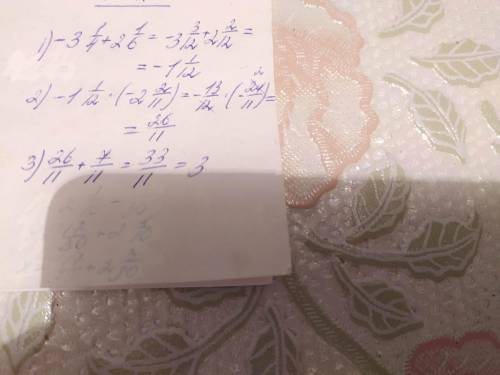 1) -3 1/4 + 2 1/6 = -3 3/12 + 2 2/12 =
= -1 1/12
2) -1 1/12 · (-2 2/11) = -13/12 · (-24/11) =
= 26/11
3) 26/11 + 7/11 = 33/11 = 3